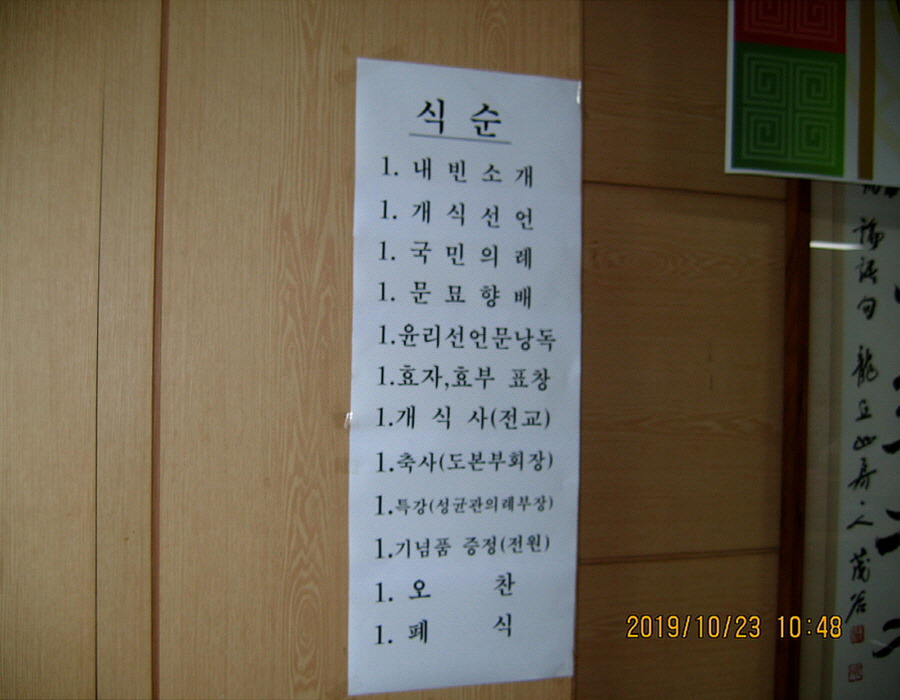 식 순
1. 내 빈 소 개
1. 개 식 선 언
1. 국 민 의 례
1. 문 묘 향 배
1.윤리선언문낭독
1.효자,효부 표창
1.개 식 사(전교)
1.축사(도본부회장)
1.특강(성균관의례부장)
1.기념품 증정(전원)
1. 오 찬
1. 폐 식
論語句 龍丘山房・人 茂谷
2019/10/23 10:48